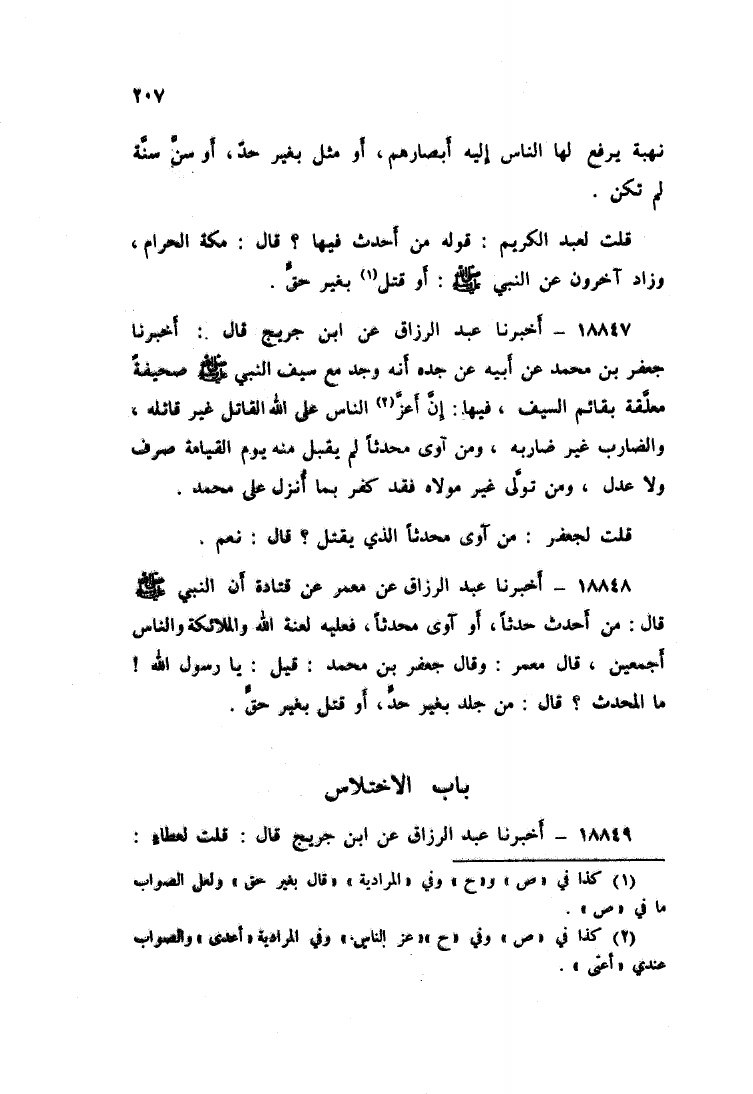 ٢٠٧
نهبة يرفع لها الناس إليه أبصارهم، أو مثل بغير حدّ، أو سنَّ سنَّة
لم تكن .
قلت لعبد الكريم : قوله من أحدث فيها ؟ قال : مكة الحرام،
وزاد آخرون عن النبي ﷺ : أو قتل(١) بغير حقٍّ .
١٨٨٤٧ – أخبرنا عبد الرزاق عن ابن جريج قال : أخبرنا
جعفر بن محمد عن أبيه عن جده أنه وجد مع سيف النبي ﷺ صحيفةً
معلَّقة بقائم السيف ، فيها : إنَّ أعزَّ(٢) الناس على الله القاتل غير قاتله ،
والضارب غير ضاربه ، ومن آوى محدثاً لم يقبل منه يوم القيامة صرف
ولا عدل ، ومن تولَّى غير مولاه فقد كفر بما أُنزل على محمد .
قلت لجعفر : من آوى محدثاً الذي يقتل ؟ قال : نعم .
١٨٨٤٨ – أخبرنا عبد الرزاق عن معمر عن قتادة أن النبي ﷺ
قال : من أحدث حدثاً، أو آوى محدثاً، فعليه لعنة الله والملائكة والناس
أجمعين ، قال معمر : وقال جعفر بن محمد : قيل : يا رسول الله !
ما المحدث ؟ قال : من جلد بغير حدٍّ، أو قتل بغير حقٍّ .
باب الاختلاس
١٨٨٤٩ – أخبرنا عبد الرزاق عن ابن جريج قال : قلت لعطاء :
(١) كذا في «ص» و«ح» وفي «المرادية» «قال بغير حق» ولعل الصواب
ما في «ص» .
(٢) كذا في «ص» وفي «ح» «عز الناس» وفي المرادية «أعدى» والصواب
عندي «أعتى» .